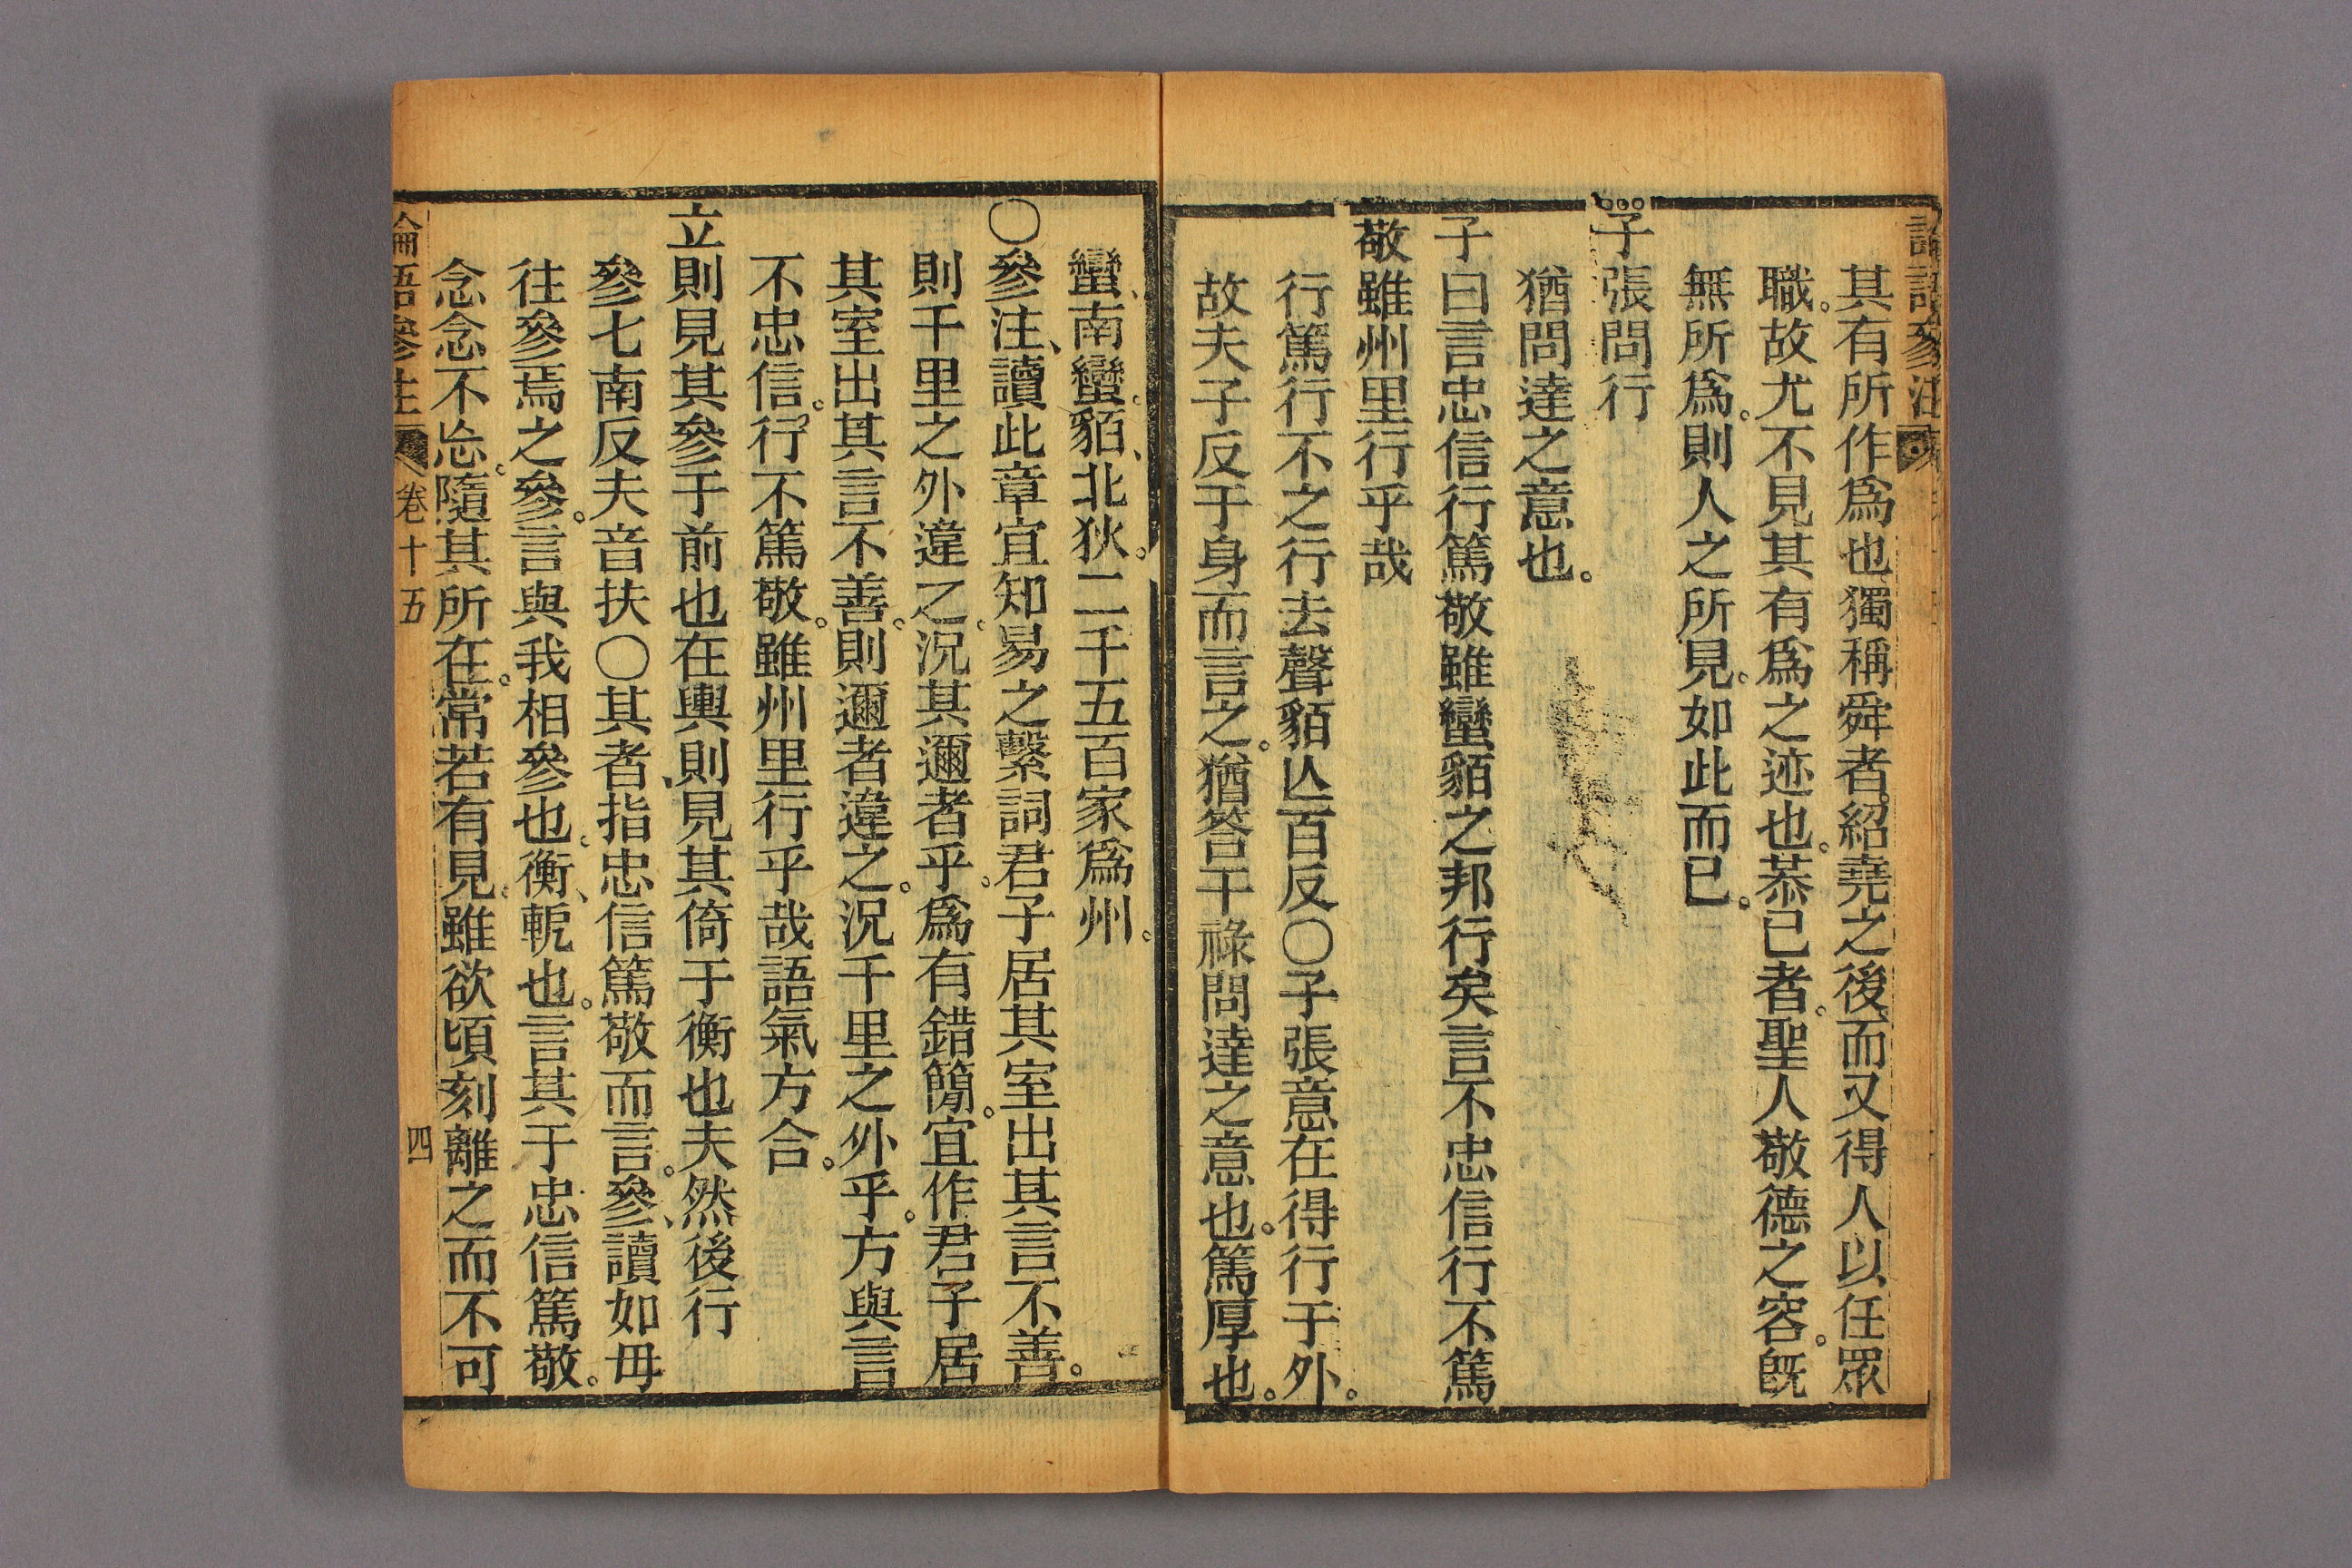 論語參注
其有所作爲也獨稱舜者。紹堯之後。而又得人以任眾
職。故尤不見其有爲之迹也。恭己者。聖人敬德之容。旣
無所爲。則人之所見。如此而已。
子張問行
猶問達之意也。
子曰言忠信行篤敬雖蠻貊之邦行矣言不忠信行不篤
敬雖州里行乎哉
行篤行不之行去聲貊亾百反〇子張意在得行于外。
故夫子反于身而言之。猶答干祿問達之意也。篤厚也。
蠻、南蠻。貊、北狄。二千五百家爲州。
〇參注、讀此章宜知易之繫詞君子居其室出其言不善。
則千里之外違之。況其邇者乎。爲有錯簡。宜作君子居
其室出其言不善。則邇者違之。況千里之外乎。方與言
不忠信。行不篤敬。雖州里行乎哉語氣方合。
立則見其參于前也在輿則見其倚于衡也夫然後行
參七南反夫音扶〇其者、指忠信篤敬而言。參、讀如毋
往參焉之參。言與我相參也。衡、軛也。言其于忠信篤敬。
念念不忘。隨其所在。常若有見。雖欲頃刻離之而不可
論語參注 卷十五 四